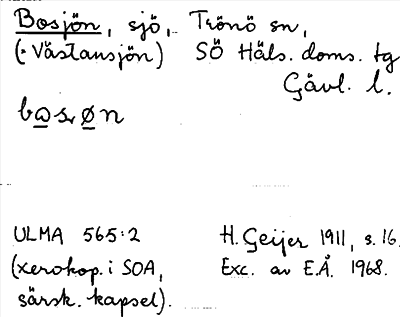 Bosjön, sjö, Trönö sn,
(= Västansjön) SÖ Häls. doms. tg
Gävl. l.
ULMA 565:2 H. Geijer 1911, s. 16.
(xerokop. i SOA, Exc. av E.Å. 1968.
särsk. kapsel).